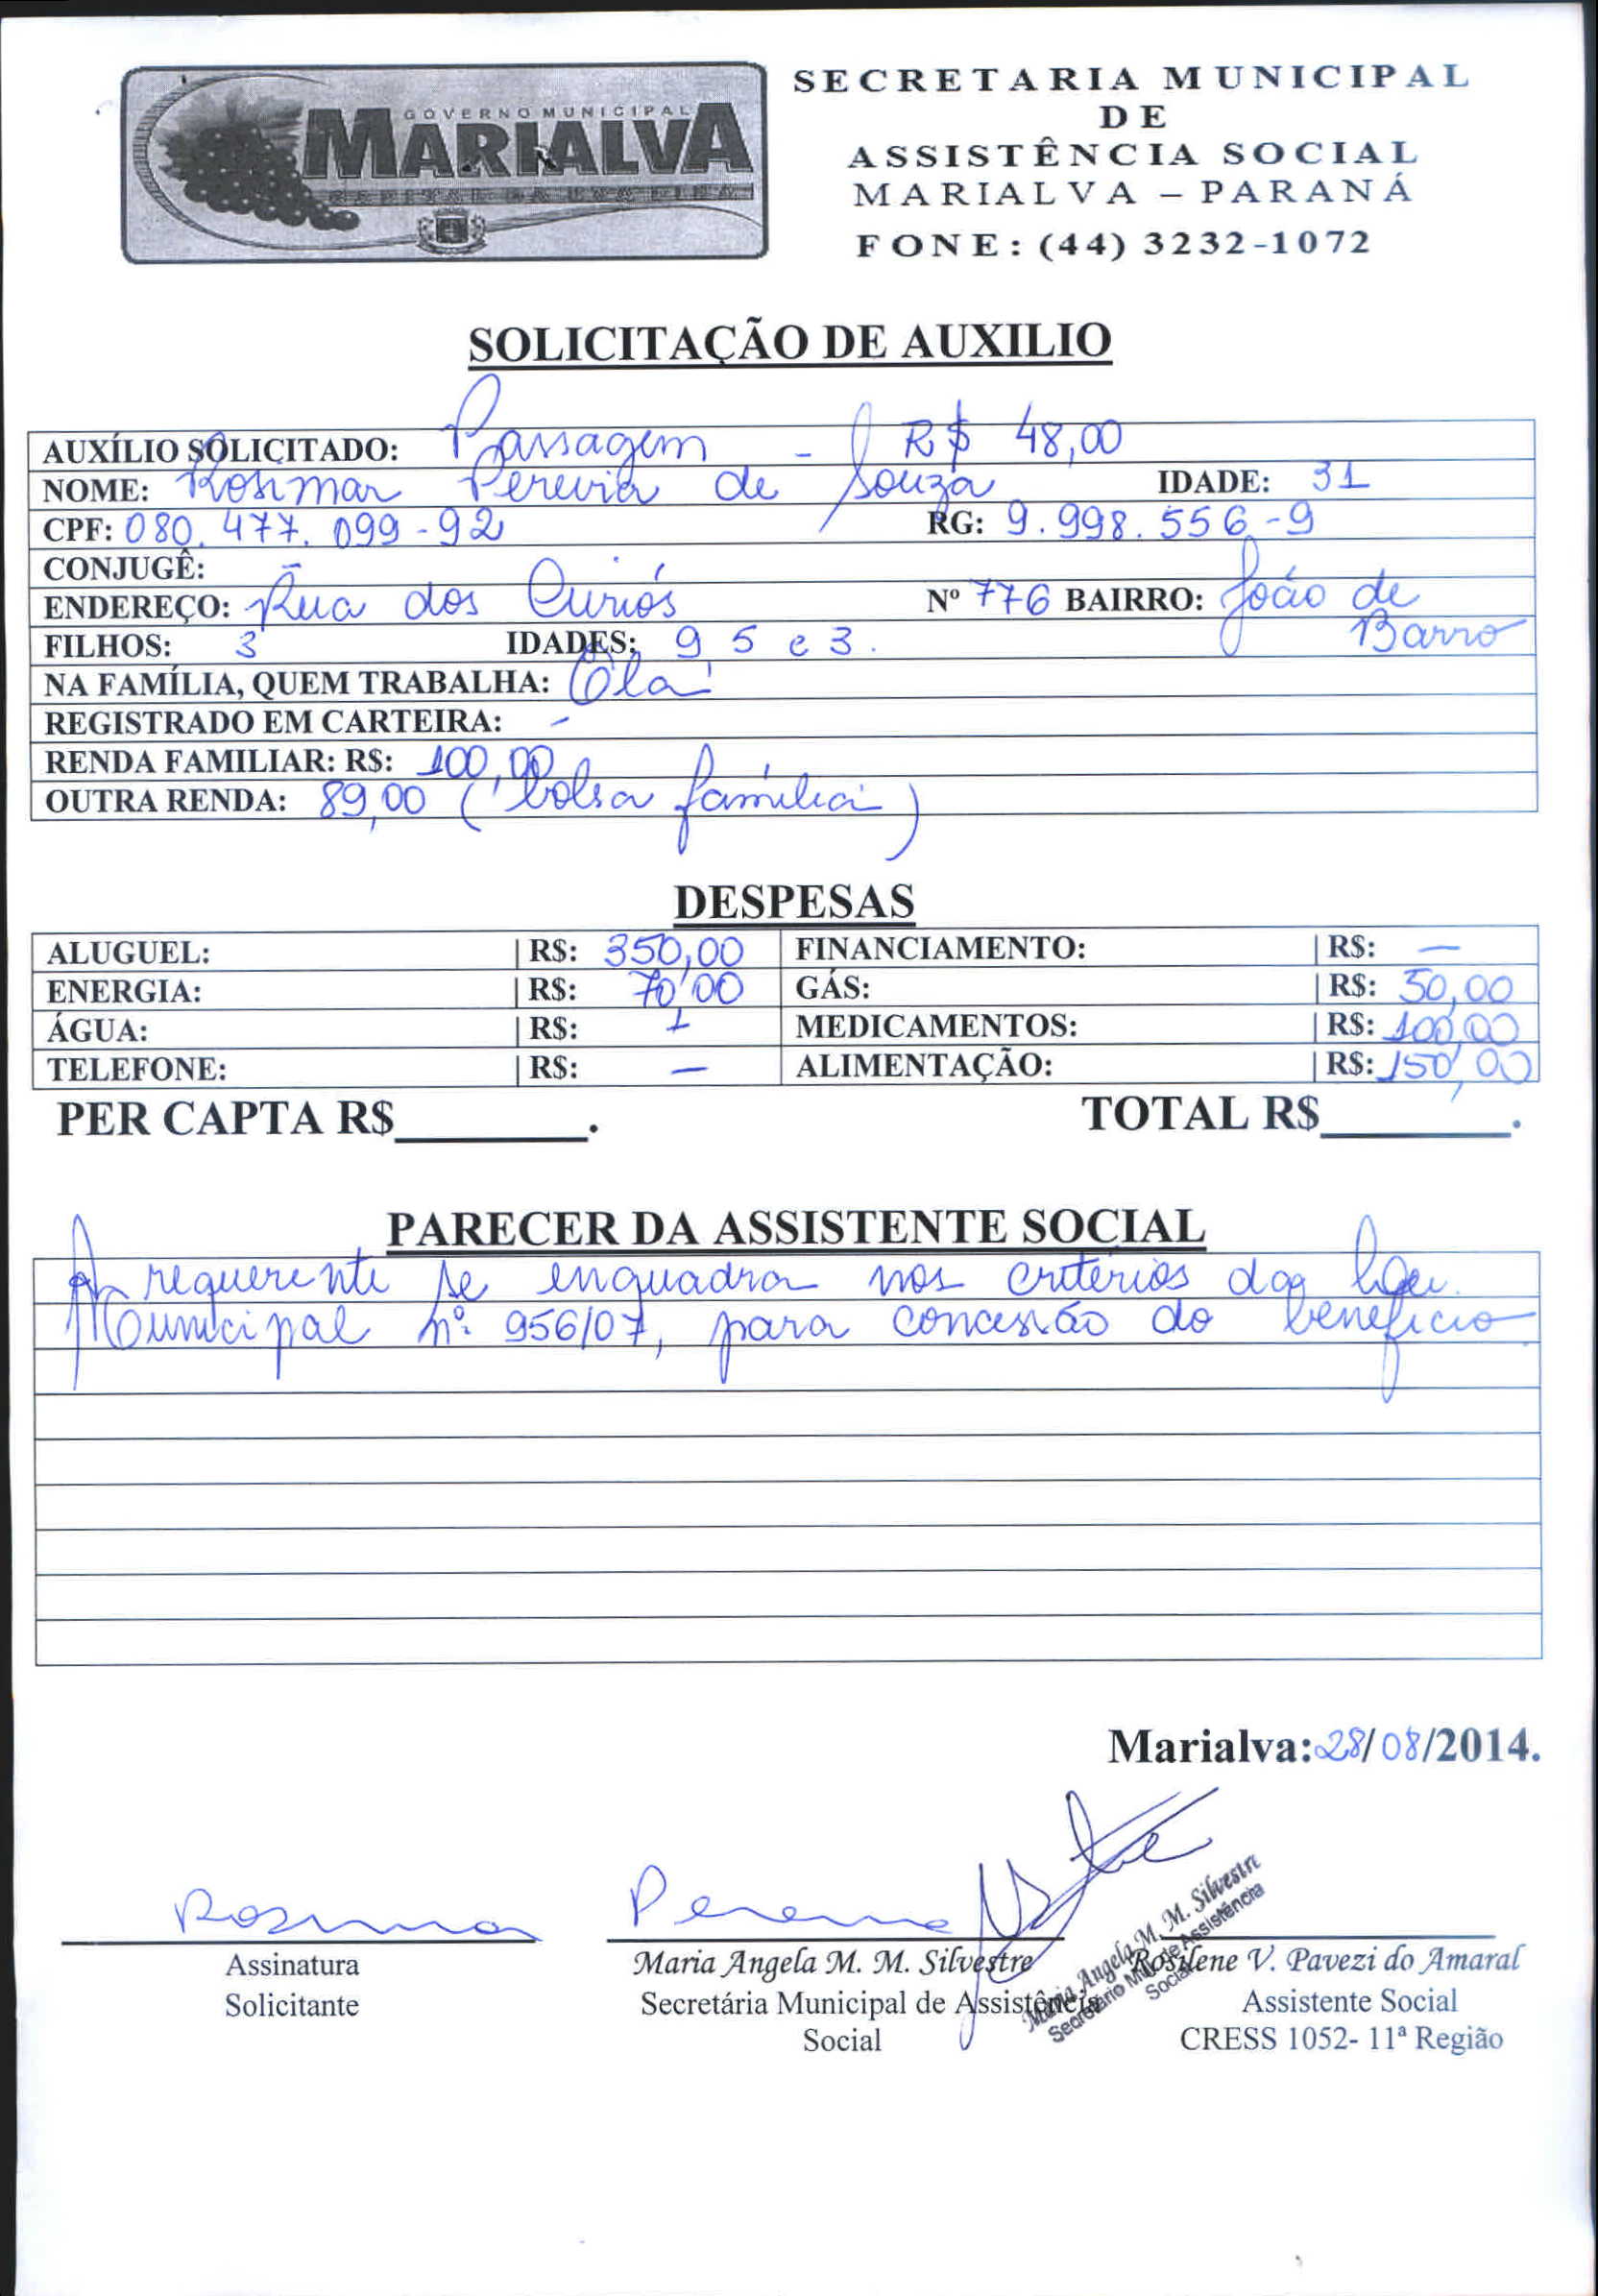 GOVERNO MUNICIPAL
MARIALVA
CAPITAL DA UVA FINA
SECRETARIA MUNICIPAL
DE
ASSISTÊNCIA SOCIAL
MARIALVA – PARANÁ
FONE: (44) 3232-1072
SOLICITAÇÃO DE AUXILIO
AUXÍLIO SOLICITADO: Passagem - R$ 48,00
NOME: Rosimar Pereira de Souza IDADE: 31
CPF: 080.477.099-92 RG: 9.998.556-9
CONJUGÊ:
ENDEREÇO: Rua dos Curiós Nº 776 BAIRRO: João de Barro
FILHOS: 3 IDADES: 9, 5 e 3.
NA FAMÍLIA, QUEM TRABALHA: Ela
REGISTRADO EM CARTEIRA: -
RENDA FAMILIAR: R$: 100,00
OUTRA RENDA: 89,00 (bolsa família)
DESPESAS
ALUGUEL: R$: 350,00 FINANCIAMENTO: R$: —
ENERGIA: R$: 70,00 GÁS: R$: 50,00
ÁGUA: R$: MEDICAMENTOS: R$: 100,00
TELEFONE: R$: — ALIMENTAÇÃO: R$: 150,00
PER CAPTA R$________. TOTAL R$________.
PARECER DA ASSISTENTE SOCIAL
A requerente se enquadra nos critérios da Lei
Municipal nº 956/07, para concessão do benefício.
Marialva: 28/08/2014.
Rosima Pereira
Assinatura
Solicitante
Maria Angela M. M. Silvestre
Secretária Municipal de Assistência
Social
Maria Angela M. M. Silvestre
Secretário Mun. de Assistência
Social
Rosilene V. Pavezi do Amaral
Assistente Social
CRESS 1052- 11ª Região